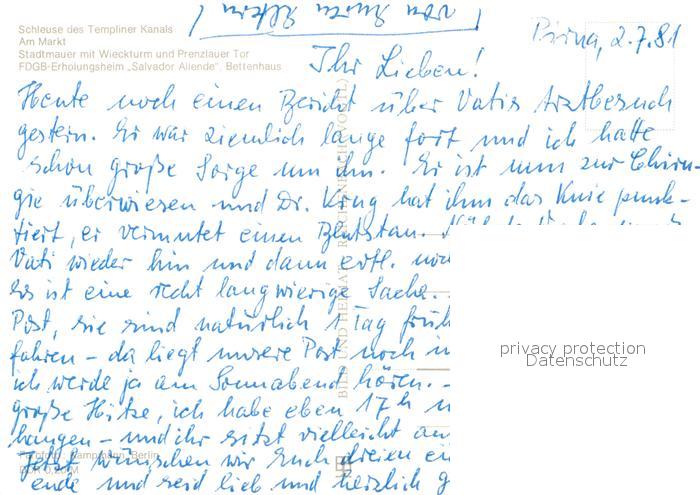 Schleuse des Templiner Kanals
Am Markt
Stadtmauer mit Wieckturm und Prenzlauer Tor
FDGB-Erholungsheim „Salvador Allende“, Bettenhaus
von Euren Eltern
Pirna, 2.7.81
Ihr Lieben!
Heute noch einen Bericht über Vatis Arztbesuch
gestern. Er war ziemlich lange fort und ich hatte
schon große Sorge um ihn. Er ist nun zur Chirur-
gie überwiesen und Dr. Krug hat ihm das Knie punk-
tiert, er vermutet einen Blutstau.
Vati wieder hin und dann evtl.
Es ist eine recht langwierige Sache.
Post, sie sind natürlich 1 Tag früh
fahren - da liegt unsere Post noch
ich werde ja am Sonnabend hören. -
große Hitze, ich habe eben 17 h
hangen - und ihr sitzt vielleicht
Jetzt wünschen wir Euch dreien
ende und seid lieb und herzlich
BILD UND HEIMAT REICHENBACH (VOGTL)
privacy protection
Datenschutz